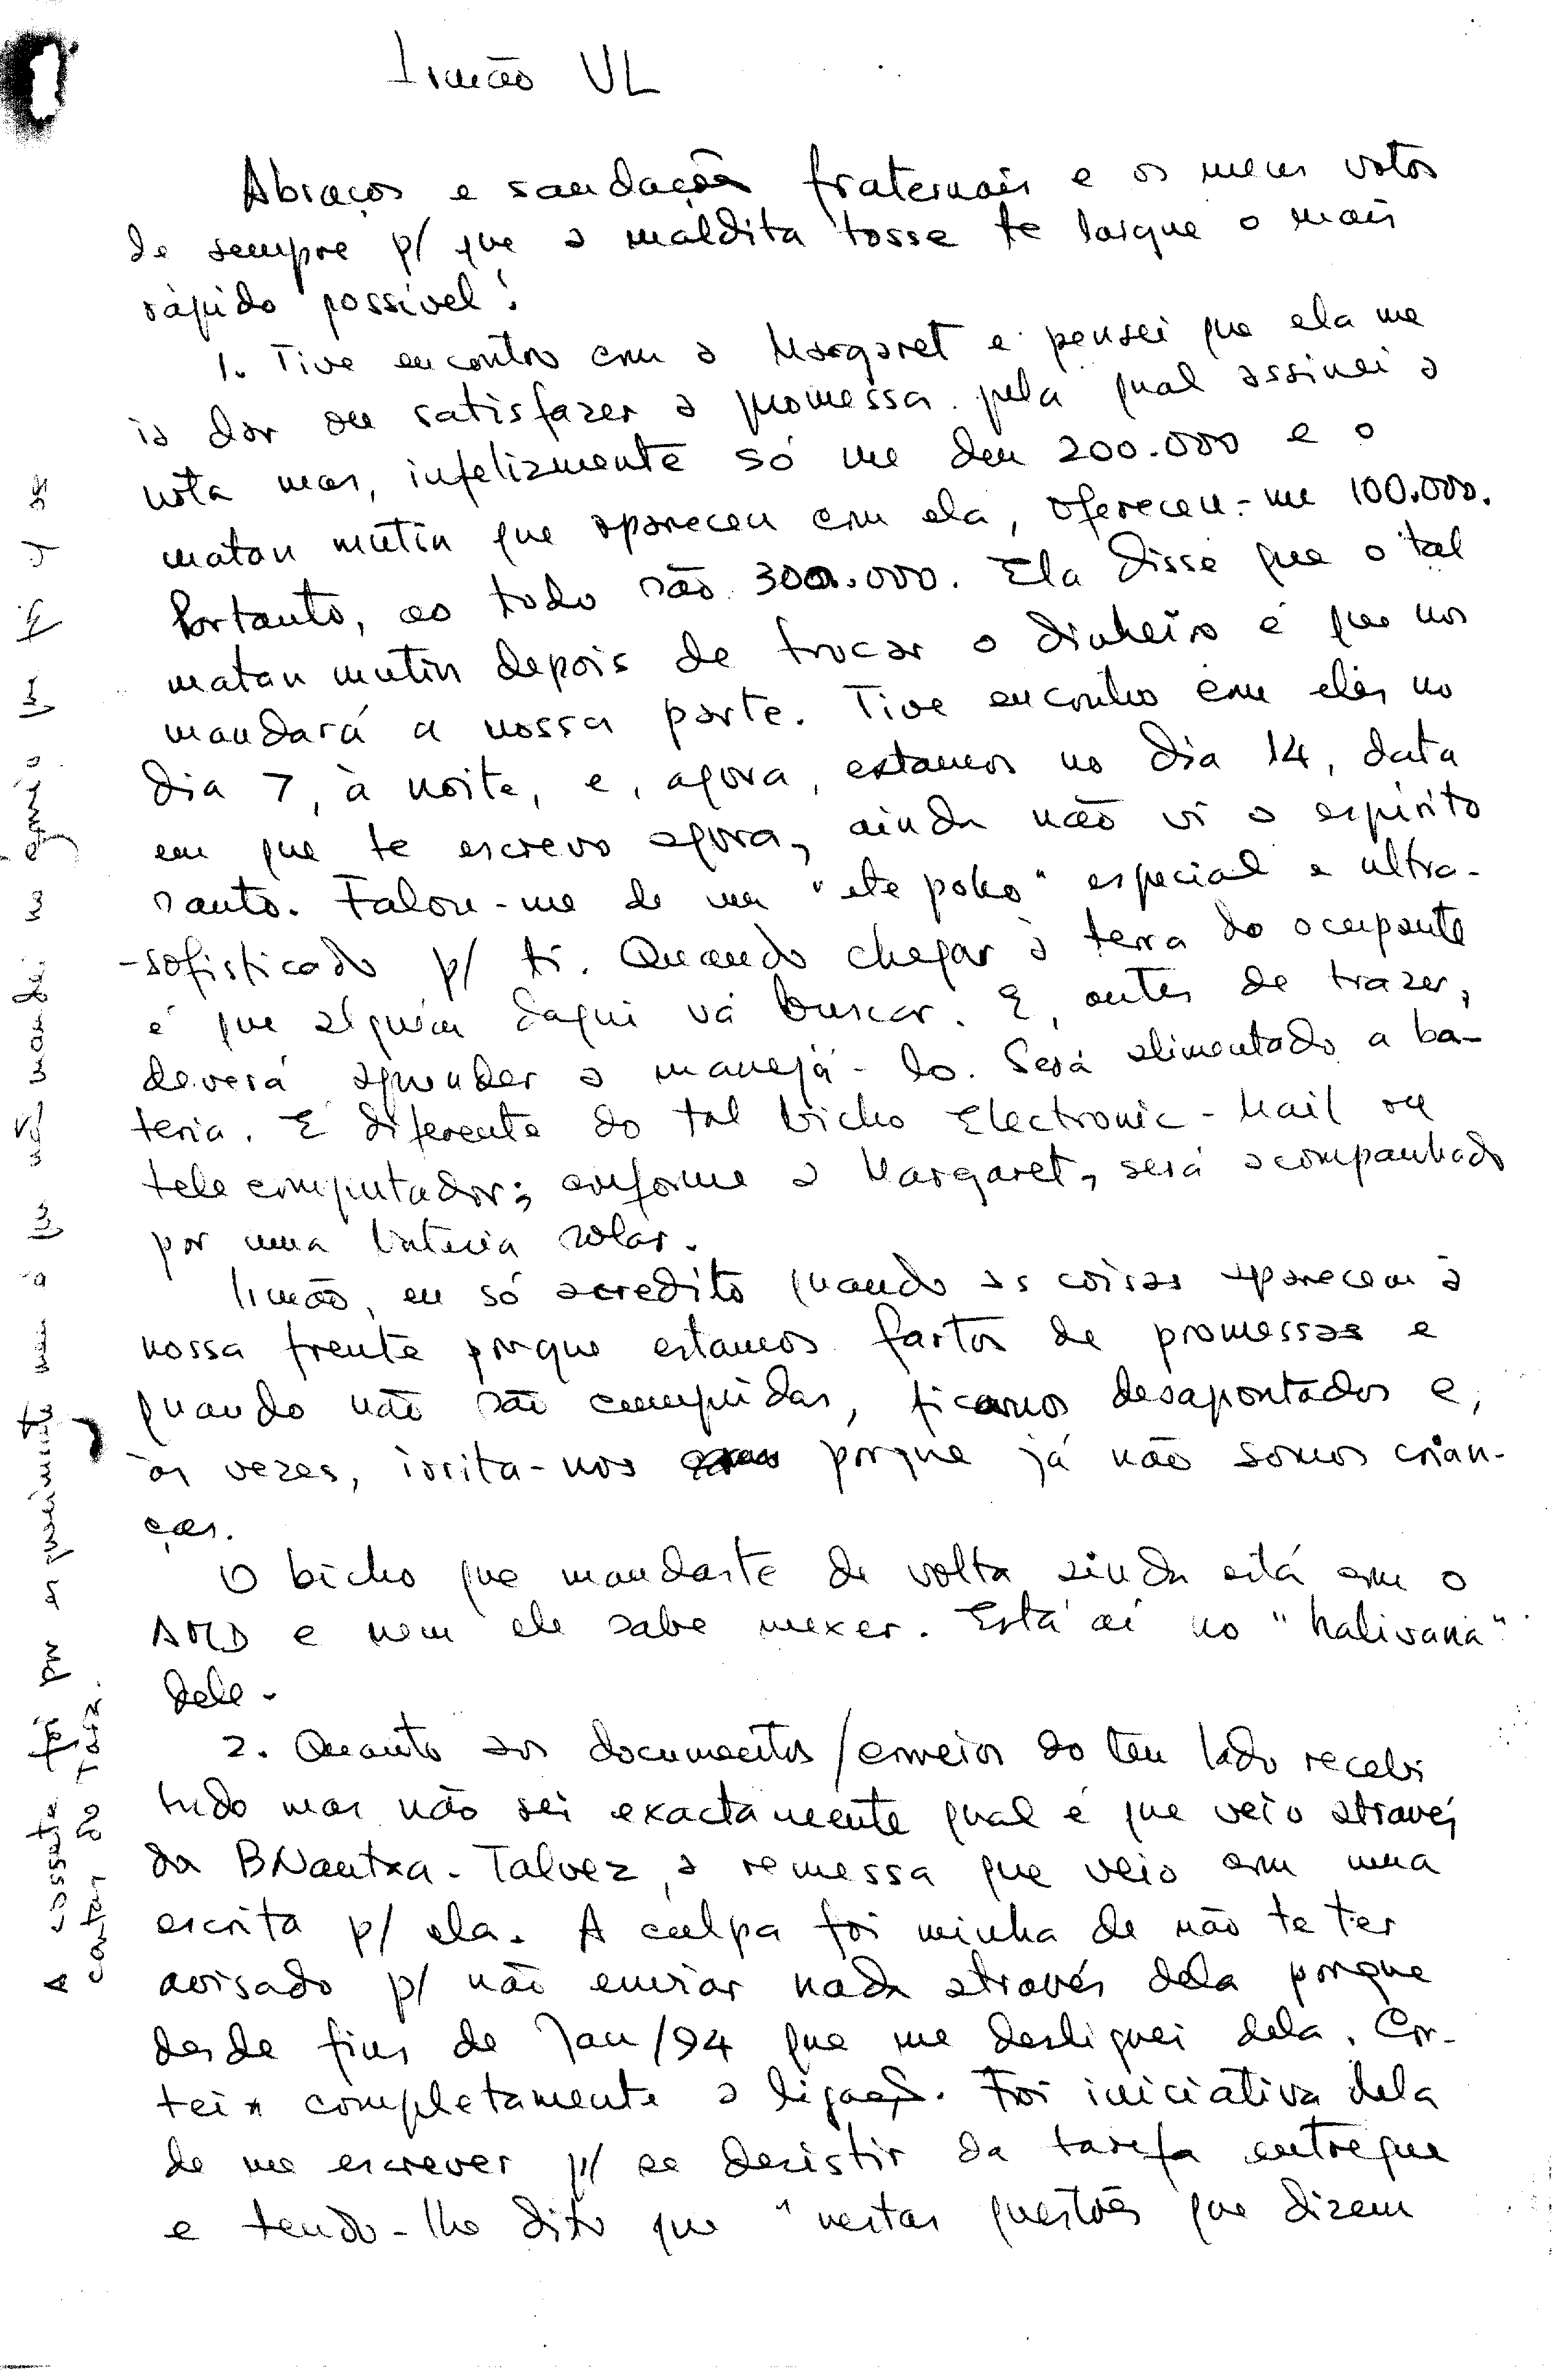 Irmão UL
Abraços e saudações fraternais e os meus votos
de sempre p/ que a maldita tosse te largue o mais
rápido possível!
1. Tive encontro com a Margaret e pensei que ela me
ia dar ou satisfazer a promessa pela qual assinei a
nota mas, infelizmente só me deu 200.000 e o
matan mutin que apareceu com ela, ofereceu-me 100.000.
Portanto, ao todo são 300.000. Ela disse que o tal
matan mutin depois de trocar o dinheiro é que nos
mandará a nossa parte. Tive encontro com eles no
dia 7, à noite, e, agora, estamos no dia 14, data
em que te escrevo agora, ainda não vi o espírito
santo. Falou-me de um "ete poko" especial e ultra-
-sofisticado p/ ti. Quando chegar à terra do ocupante
é que alguém daqui vá buscar. E, antes de trazer,
deverá aprender a manejá-lo. Será alimentado a ba-
teria. É diferente do tal bicho Electronic-Mail ou
telecomputador; conforme a Margaret, será acompanhado
por uma bateria solar.
Irmão, eu só acredito quando as coisas aparecem à
nossa frente porque estamos fartos de promessas e
quando não são cumpridas, ficamos desapontados e,
às vezes, irrita-nos porque já não somos crian-
ças.
O bicho que mandaste de volta ainda está com o
AMD e nem ele sabe mexer. Está aí no "halivana"
dele.
2. Quanto aos documentos/correios do teu lado recebi
tudo mas não sei exactamente qual é que veio através
da BNantxa. Talvez, a remessa que veio com uma
escrita p/ ela. A culpa foi minha de não te ter
avisado p/ não enviar nada através dela porque
desde fins de Jan/94 que me desliguei dela. Cor-
tei completamente a ligação. Foi iniciativa dela
de me escrever p/ se desistir da tarefa entregue
e tendo-lhe dito que "nestas questões que dizem
A cassete foi por
cantar do Taız.